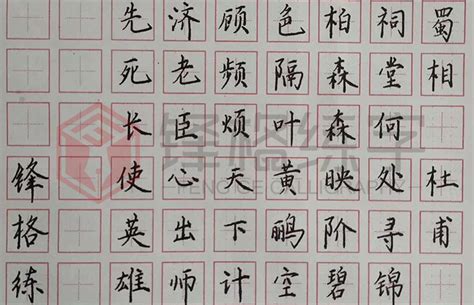 蜀相 杜甫
祠堂何处寻锦
柏森森映阶碧
色隔叶黄鹂空
顾频烦天下计
济老臣心出师
先死长使英雄
锋格练
锋格练字
FENGGE CALLIGRAPHY